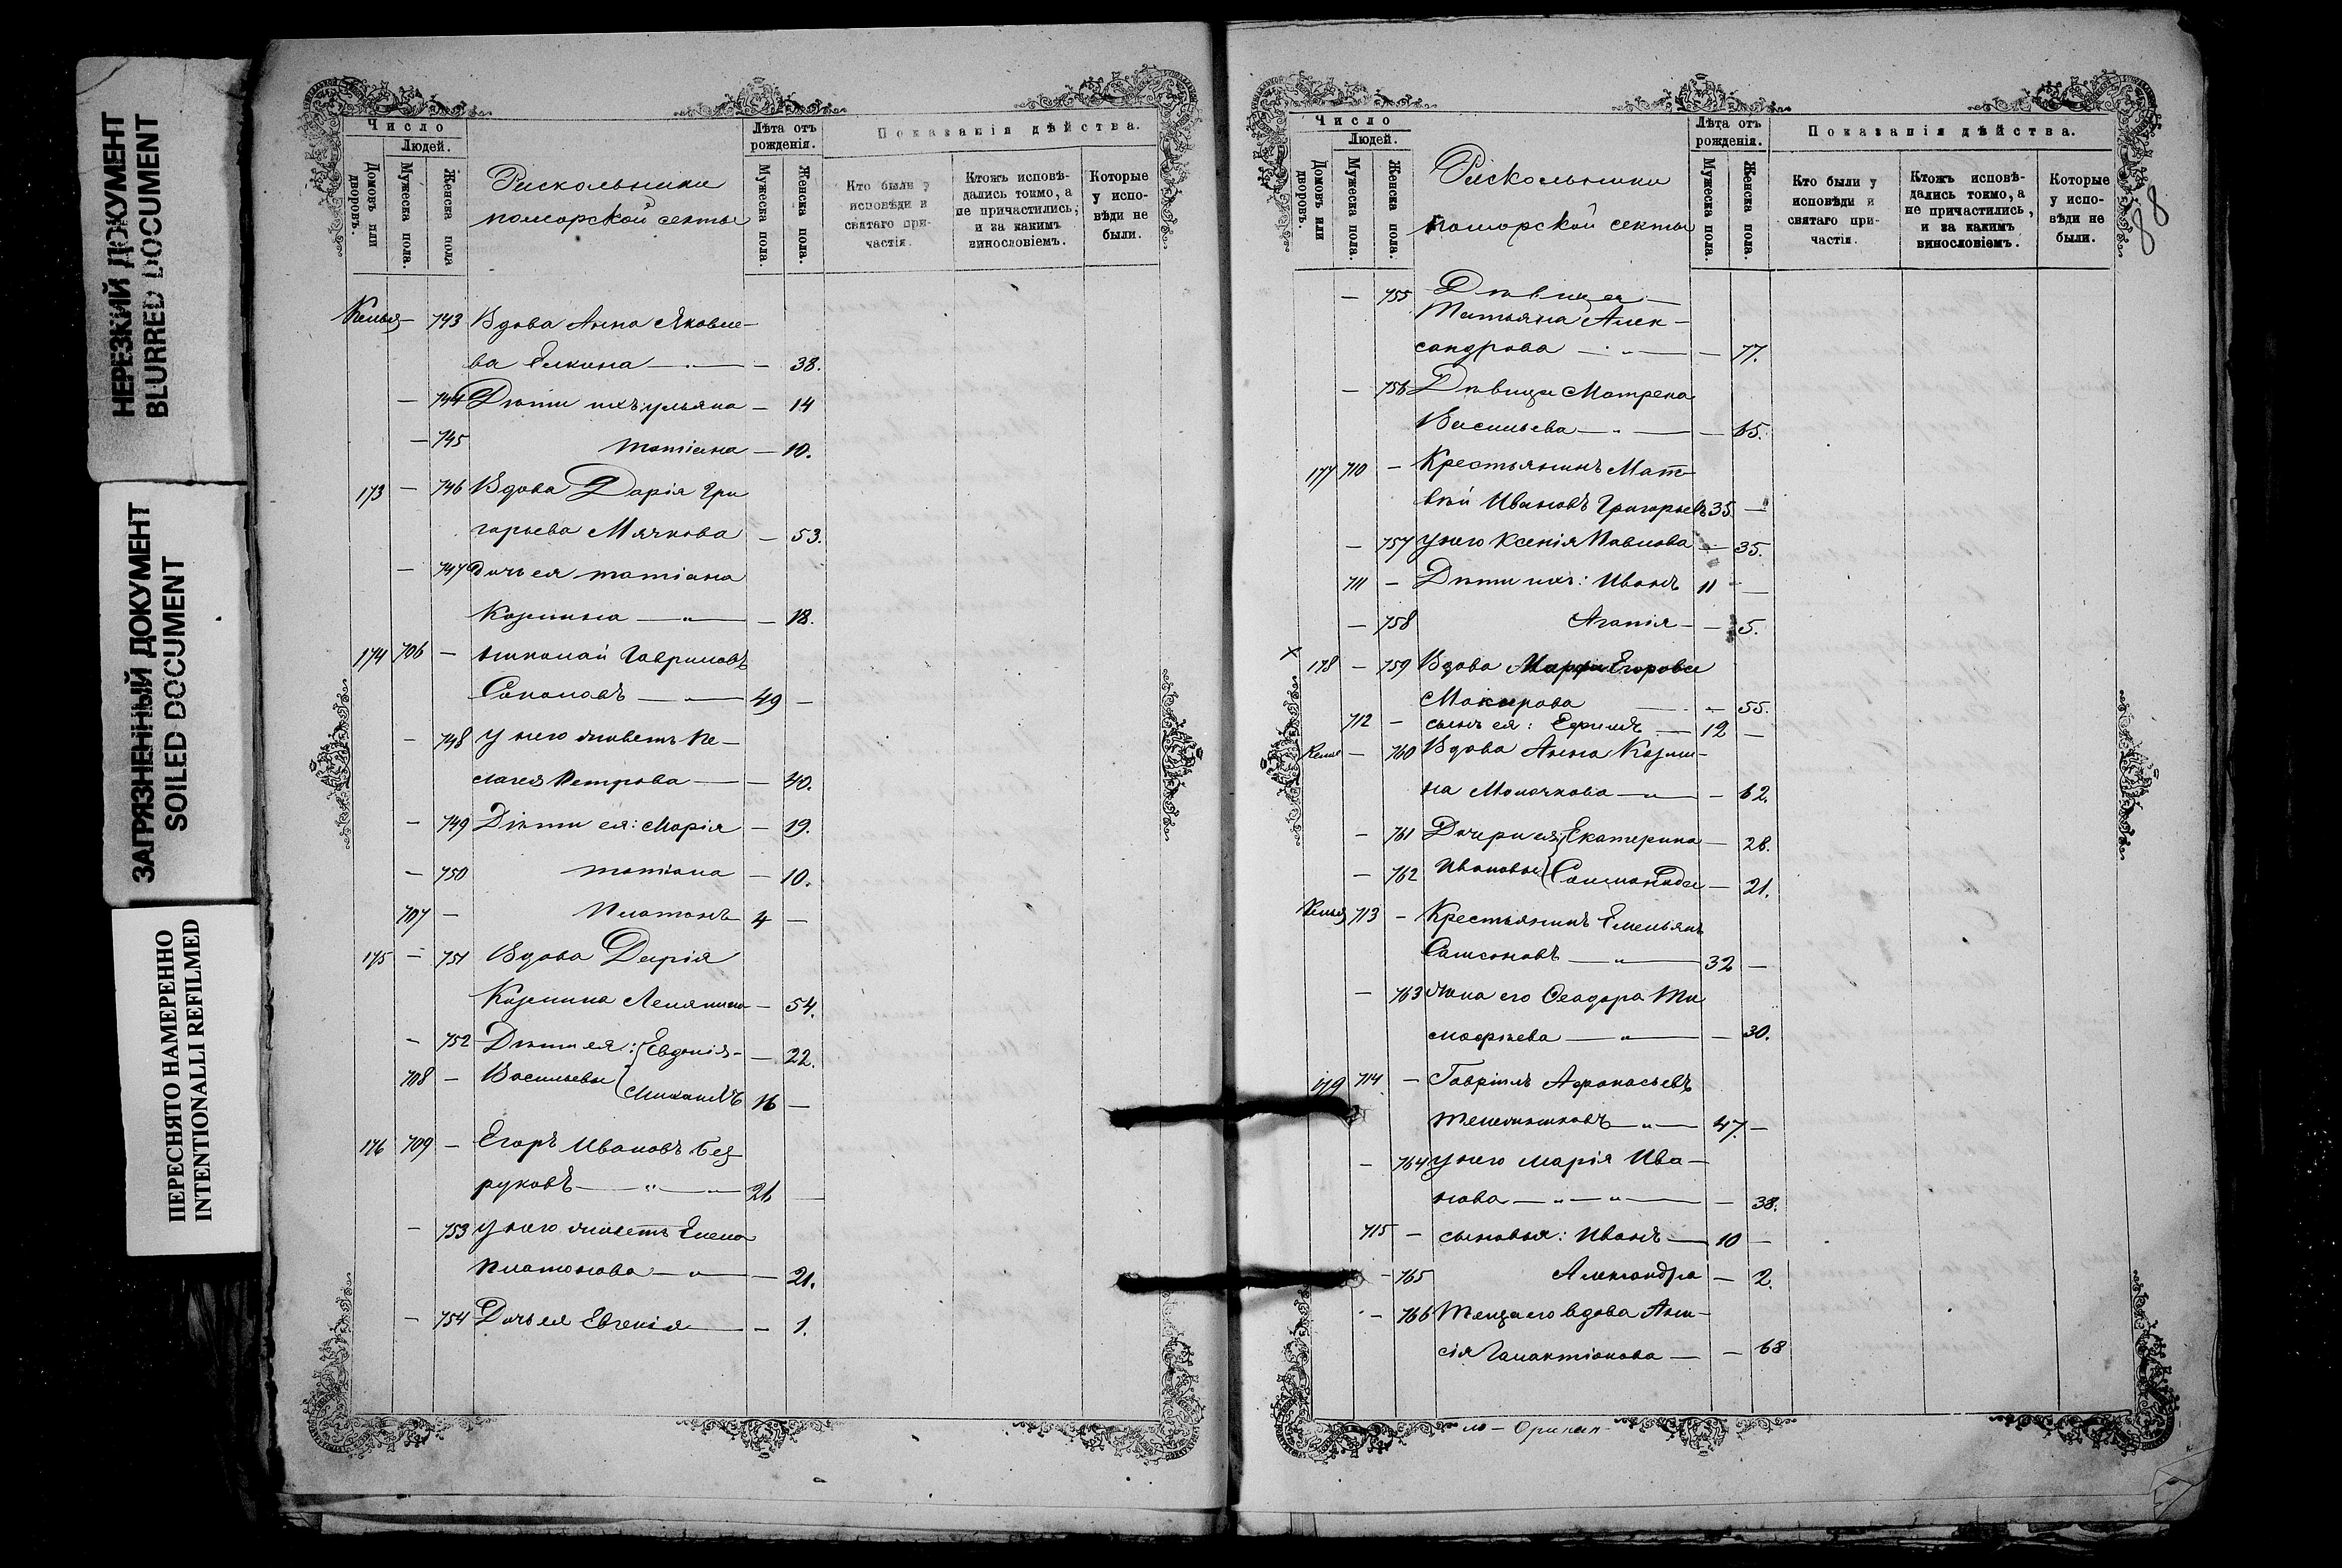 НЕРЕЗКИЙ ДОКУМЕНТ
BLURRED DOCUMENT
ЗАГРЯЗНЕННЫЙ ДОКУМЕНТ
SOILED DOCUMENT
ПЕРЕСНЯТО НАМЕРЕННО
INTENTIONALLI REFILMED
Число
Людей.
Домовъ или дворовъ.
Мужеска пола.
Женска пола
Раскольники
поморской секты
Лѣта отъ рожденія.
Мужеска пола.
Женска пола.
Показанія дѣйства.
Кто были у исповѣди и святаго при-частія.
Ктожъ исповѣ-дались токмо, а не причастились, и за какимъ винословіемъ.
Которые у испо-вѣди не были.
Келья — 743 Вдова Анна Яковле-
ва Елкина — — 38.
— 744 Дѣти ихъ: ульяна — 14
— 745 татіана — 10.
173 — 746 Вдова Дарія Гри
горьева Мячкова — 53.
— 747 Дочь ея татіана
Козмина — „ — — 18.
174 706 — Николай Гавриловъ
Соколовъ — 49 —
— 748 у него живетъ Пе-
лагея Петрова — — 40.
— 749 Дѣти ея: Марія — 19.
— 750 татіана — 10.
707 — Платонъ 4 —
175 — 751 Вдова Дарія
Козмина — 54.
— 752 Дѣти ея: Евдокія — 22.
708 — Васильевы Михаилъ 16 —
176 709 — Егоръ Ивановъ Без
руковъ — „ — 26 —
— 753 у него живетъ Елена
Платонова — „ — — 21.
— 754 Дочь ея Евгенія — — 1.
Число
Людей.
Домовъ или дворовъ.
Мужеска пола.
Женска пола.
Раскольники
поморской секты
Лѣта отъ рожденія.
Мужеска пола.
Женска пола.
Показанія дѣйства.
Кто были у исповѣди и святаго при-частія.
Ктожъ исповѣ-дались токмо, а не причастились, и за какимъ винословіемъ.
Которые у испо-вѣди не были.
88
— 755 Дѣвица
Татьяна Алек-
сандрова — „ — — 77.
— 756 Дѣвица Матрена
Васильева — „ — — 65.
177 710 — Крестьянинъ Мат-
вѣй Ивановъ Григорьевъ 35 —
— 757 у него Ксенія Павлова — 35.
711 — Дѣти ихъ: Иванъ 11 —
— 758 Агапія — — 5.
х 178 — 759 Вдова Марфа Егорова
Мокирова — 55.
712 — сынъ ея: Ефимъ — 12 —
Келья — 760 Вдова Анна Козми-
на Молочкова — „ — — 62.
— 761 Дочери ея: Екатерина — 26.
— 762 Ивановы Саломонида — 21.
Келья 713 — Крестьянинъ Емельянъ
Самсоновъ — „ — 32 —
— 763 жена его Ѳеодора Ти
мофѣева — „ — — 30.
179 714 — Гавріилъ Афанасьевъ
— „ — 47. —
— 764 у него Марія Ива-
нова — „ — „ — — 38.
715 — сыновья: Иванъ — 10 —
— 765 Александра — 2.
— 766 Теща его вдова Ани-
сія Галактіонова — — 68